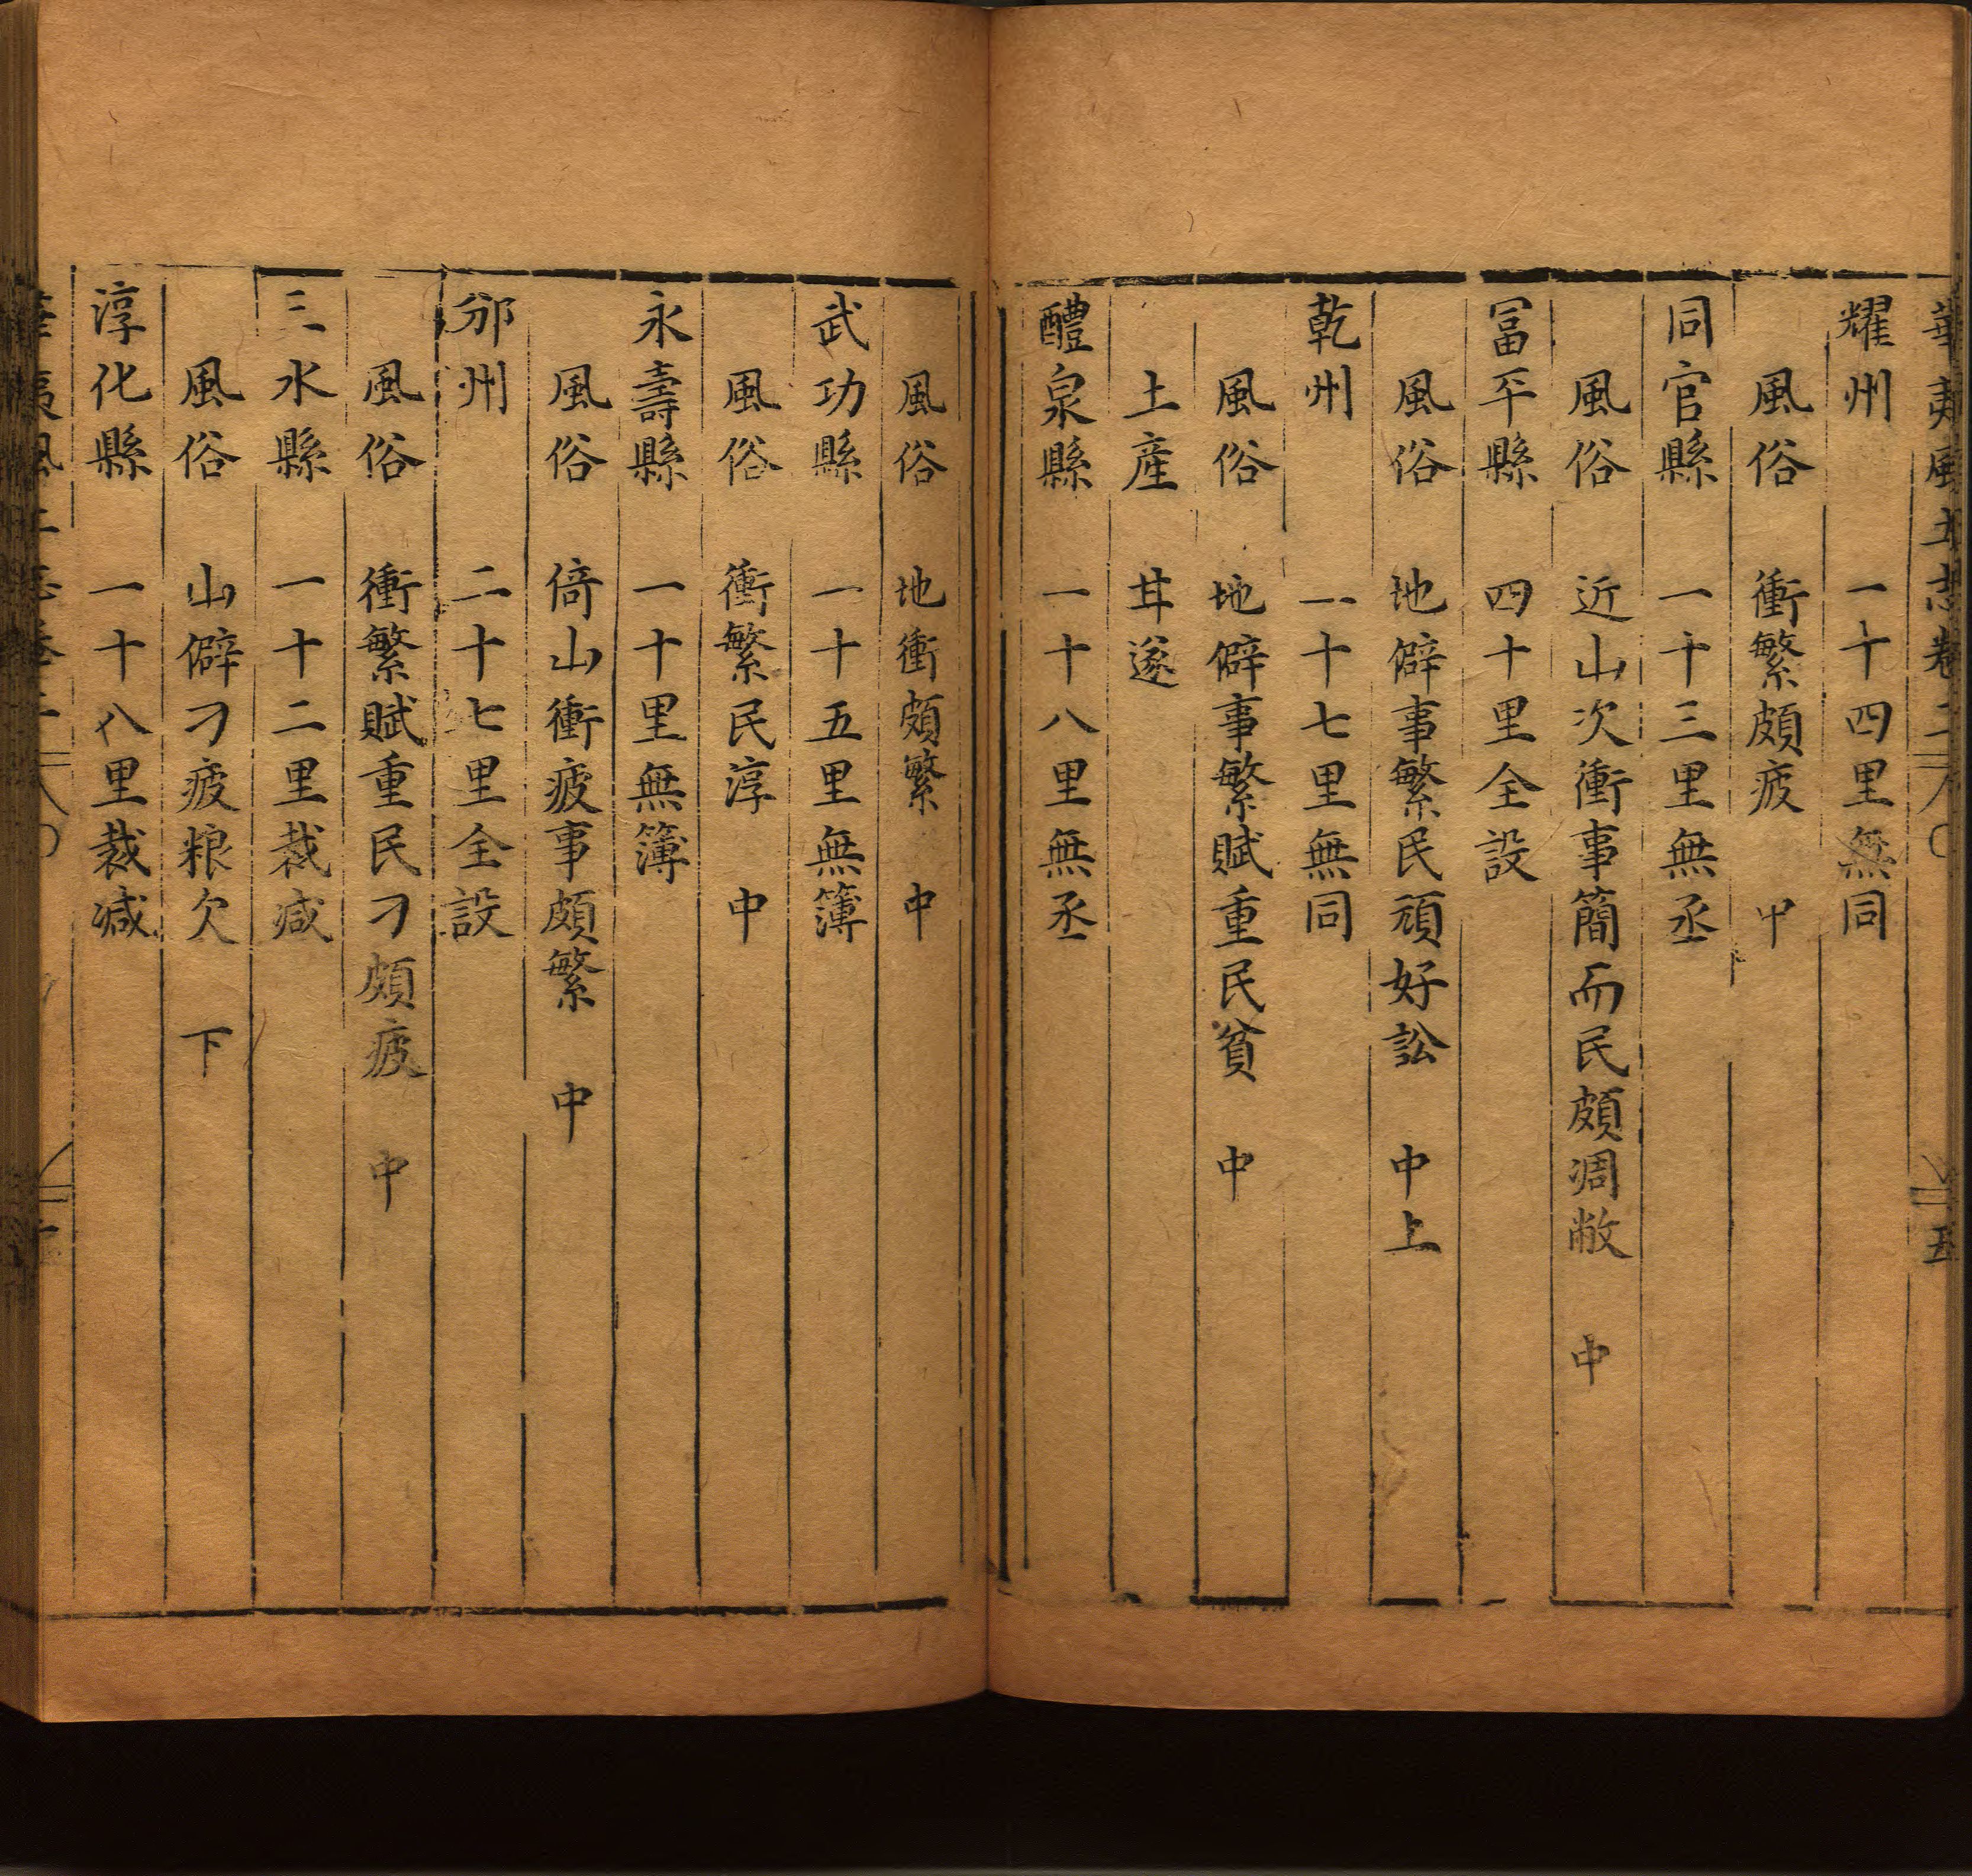 華夷風土志卷二 五
耀州 一十四里無同
風俗 衝繁頗疲 中
同官縣 一十三里無丞
風俗 近山次衝事簡而民頗凋敝 中
冨平縣 四十里全設
風俗 地僻事繁民頑好訟 中上
乾州 一十七里無同
風俗 地僻事繁賦重民貧 中
土産 甘遂
醴泉縣 一十八里無丞
風俗 地衝頗繁 中
武功縣 一十五里無簿
風俗 衝繁民淳 中
永壽縣 一十里無簿
風俗 倚山衝疲事頗繁 中
邠州 二十七里全設
風俗 衝繁賦重民刁頗疲 中
三水縣 一十二里裁减
風俗 山僻刁疲粮欠 下
淳化縣 一十八里裁减